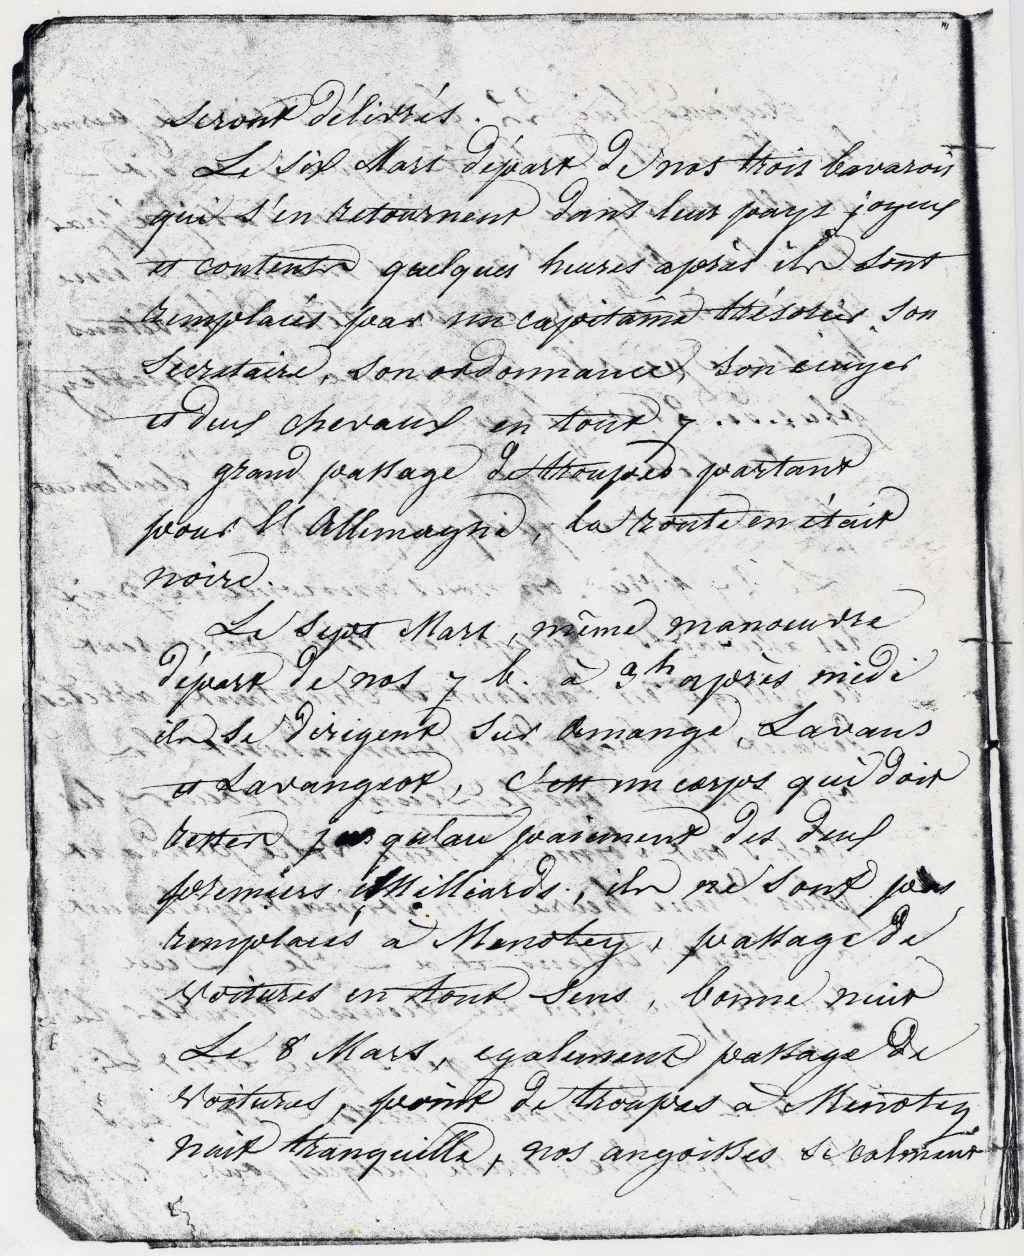 seront délivrés.
Le six Mars départ de nos trois bavarois
qui s'en retournent dans leur pays joyeux
et contents quelques heures après ils sont
remplacés par un capitaine trésorier, son
secretaire, son ordonnance, son écuyer
et deux chevaux en tout 7
grand passage de troupes partant
pour l'Allemagne, la route en était
noire.
Le Sept Mars, même manoeuvre
départ de nos 7 b. à 3h après midi
ils se dirigent sur Amange, Lavans
et Lavangeot, c'est un corps qui doit
rester jusqu'au paiement des deux
premiers Milliards, ils ne sont pas
remplacés à Menotey, passage de
voitures en tout sens, bonne nuit
Le 8 Mars, egalement passage de
voitures, point de troupes à Menotey
nuit tranquille, nos angoisses se calment